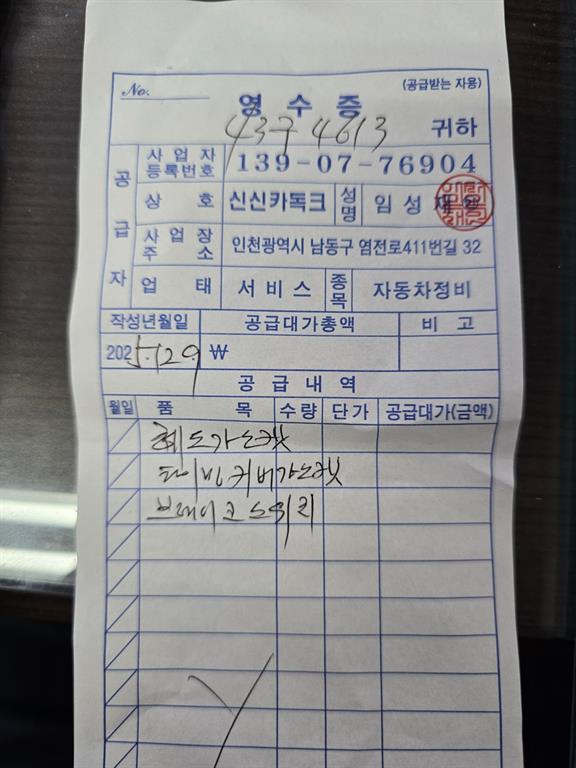 No.
(공급받는 자용)
영 수 증
43구 4613 귀하
공급자
사업자등록번호 139-07-76904
상 호 신신카독크 성명 임성재 인
사업장주소 인천광역시 남동구 염전로411번길 32
업 태 서비스 종목 자동차정비
작성년월일 공급대가총액 비 고
2025.129. ₩
공 급 내 역
월일 품 목 수량 단가 공급대가(금액)
헤드가스켓
타이밍커버가스켓
브레이크스위치